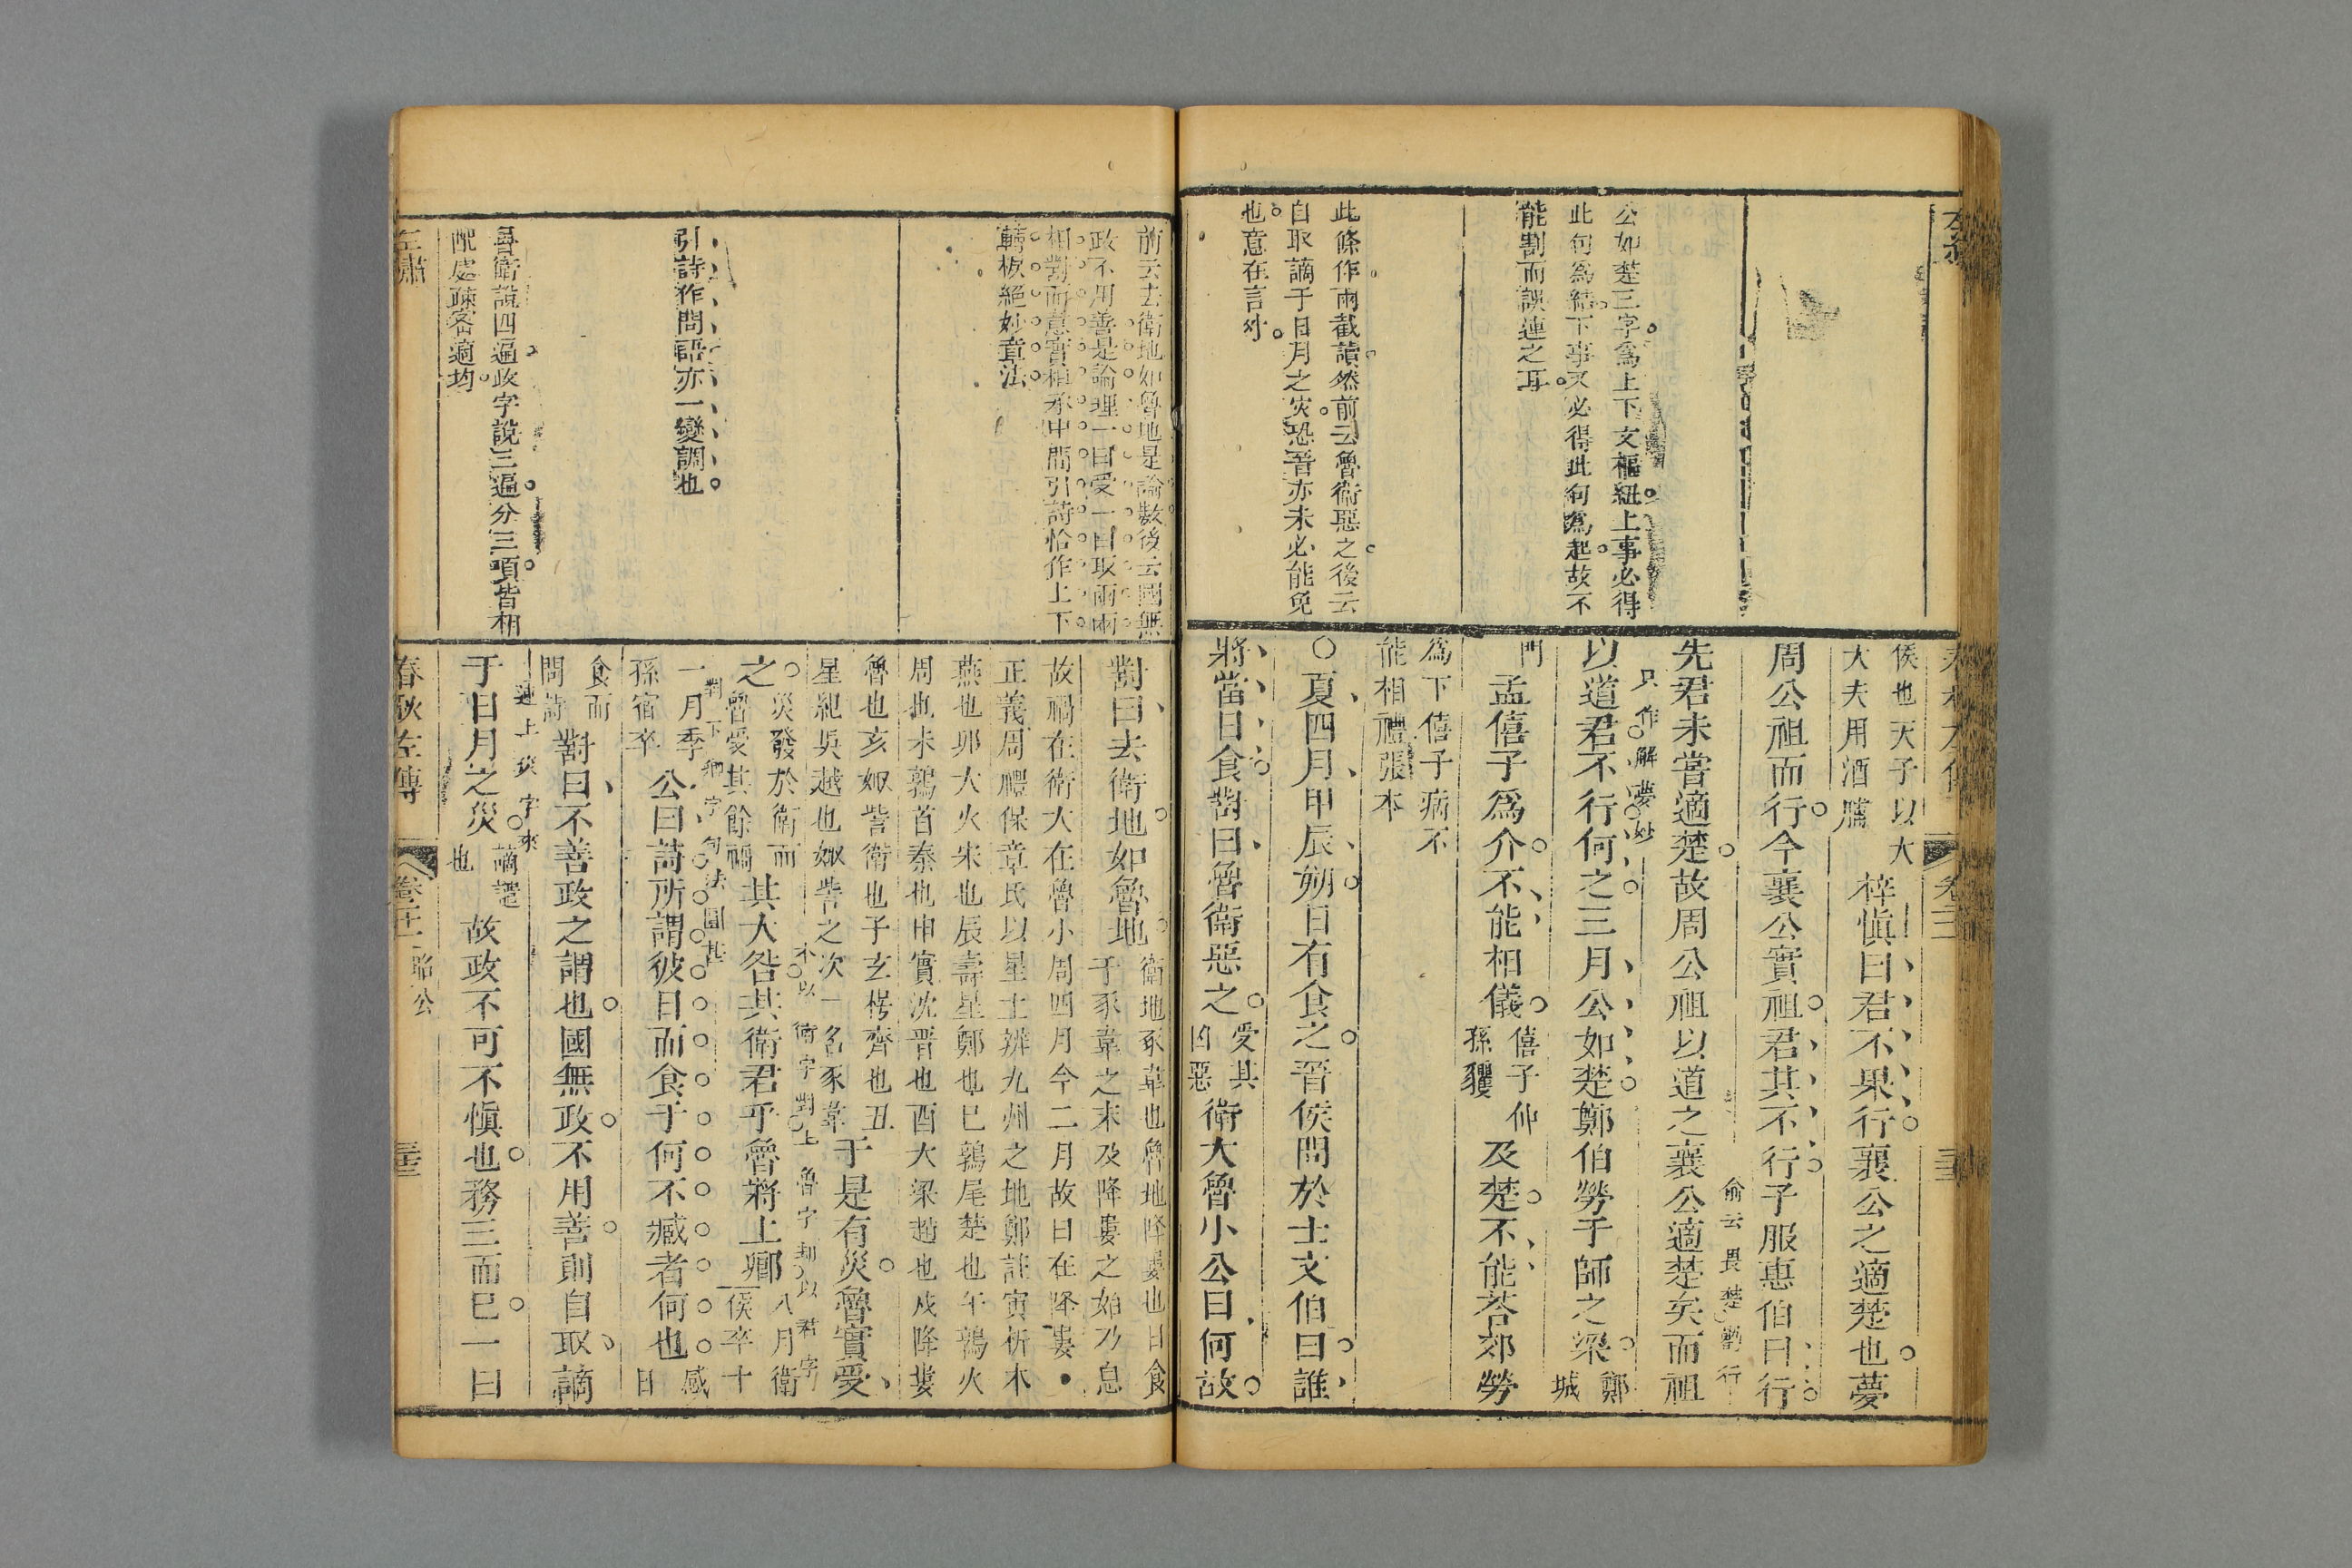 公如楚三字爲上下文樞紐上事必得
此句爲結下事又必得此句爲起故不
能割而誤連之耳
此條作兩截讀然前云魯衛惡之後云
自取謫于日月之災恐晉亦未必能免
也意在言外
侯也天子以大
大夫用酒牗
梓愼曰君不果行襄公之適楚也夢
周公祖而行今襄公實祖君其不行子服惠伯曰行
俞云畏楚勸行
先君未嘗適楚故周公祖以道之襄公適楚矣而祖
只作解夢妙
以道君不行何之三月公如楚鄭伯勞于師之梁
鄭城
門
孟僖子爲介不能相儀
僖子仲
孫貜
及楚不能荅郊勞
為下僖子病不
能相禮張本
○夏四月甲辰朔日有食之晉侯問於士文伯曰誰
將當日食對曰魯衛惡之
受其
凶惡
衛大魯小公曰何故
前云去衛地如魯地是論數後云國無
政不用善是論理一曰受一曰取兩兩
相對而意實相承中間引詩恰作上下
轉板絕妙章法
引詩作問語亦一變調也
魯衛說四遍政字說三遍分三項皆相
配處疎密適均
對曰去衛地如魯地
衛地豕韋也魯地降婁也日食
于豕韋之末及降婁之始乃息
故禍在衛大在魯小周四月今二月故曰在降婁
正義周禮保章氏以星土辨九州之地鄭註寅析木
燕也卯大火宋也辰壽星鄭也巳鶉尾楚也午鶉火
周也未鶉首秦也申實沈晉也酉大梁趙也戌降婁
魯也亥娵訾衛也子玄枵齊也丑
星紀吳越也娵訾之次一名豕韋
于是有災魯實受
之
災發於衛而
魯受其餘禍
其大咎其衛君乎魯將上卿
八月衛
侯卒十
一月季
孫宿卒
公曰詩所謂彼日而食于何不臧者何也
感日
食而
問詩
對曰不善政之謂也國無政不用善則自取謫
于日月之災
謫譴
也
故政不可不愼也務三而已一曰
左繡
春秋左傳
昭公